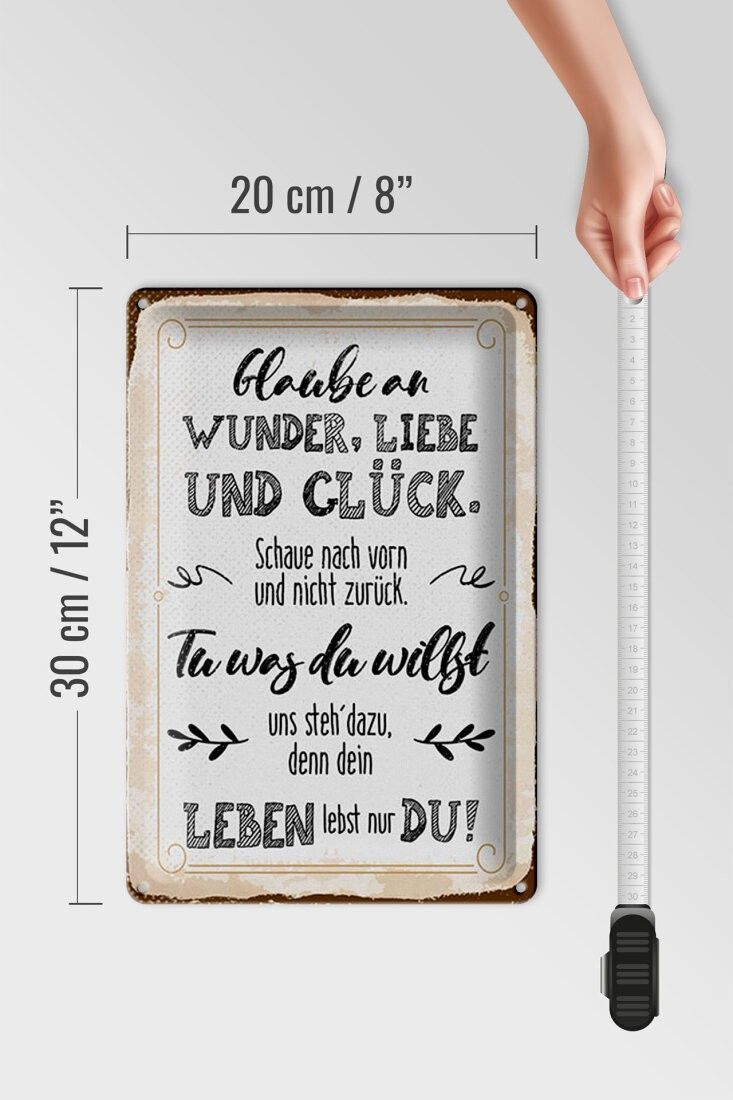 20 cm / 8”
30 cm / 12”
Glaube an
WUNDER, LIEBE
UND GLÜCK.
Schaue nach vorn
und nicht zurück.
Tu was du willst
uns steh´dazu,
denn dein
LEBEN lebst nur DU!
2
3
4
5
6
7
8
9
10
11
12
13
14
15
16
17
18
19
20
21
22
23
24
25
26
27
28
29
30